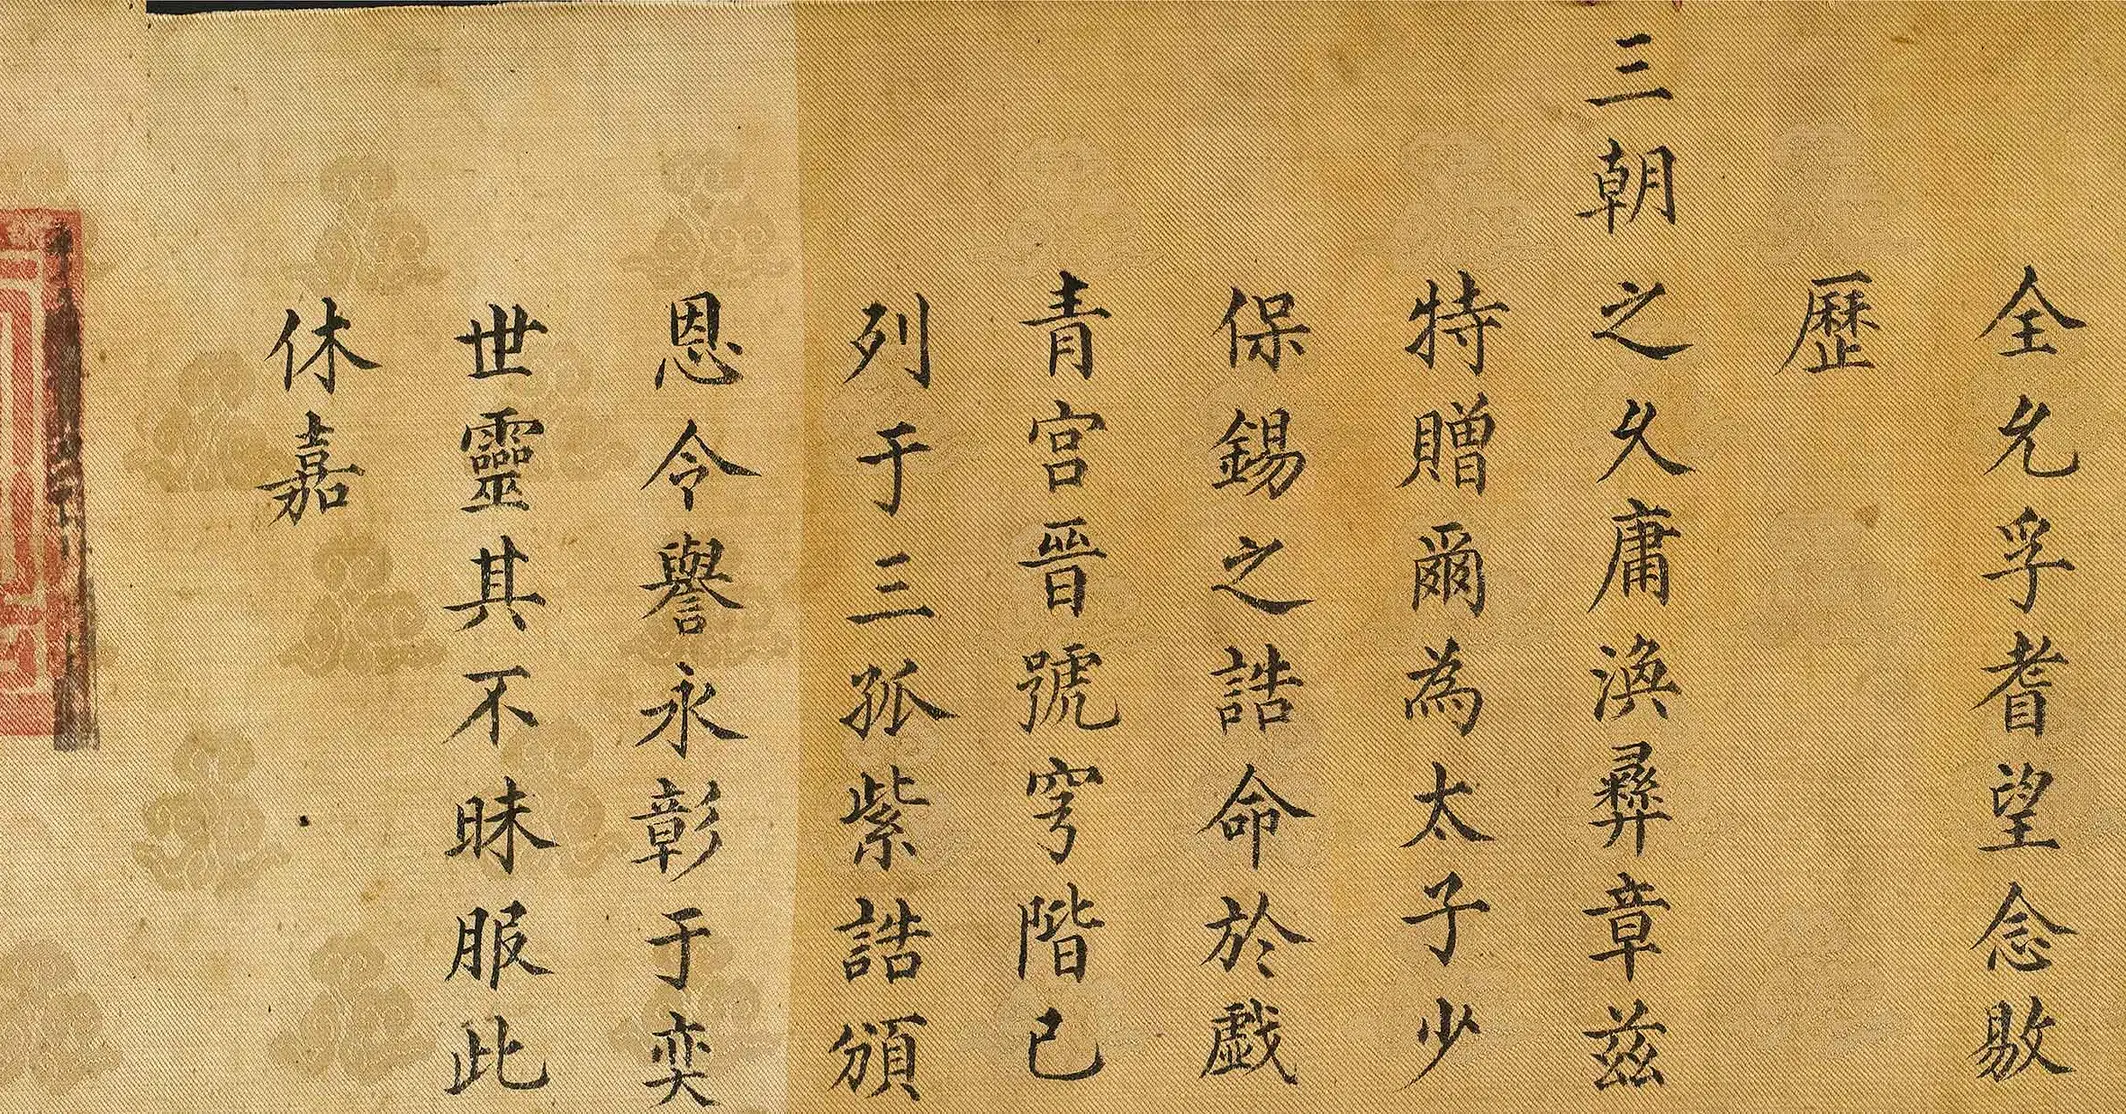 全允孚耆望念敭
歷
三朝之久庸渙彝章茲
特贈爾為太子少
保錫之誥命於戲
青宮晉號穹階已
列于三孤紫誥頒
恩令譽永彰于奕
世靈其不昧服此
休嘉